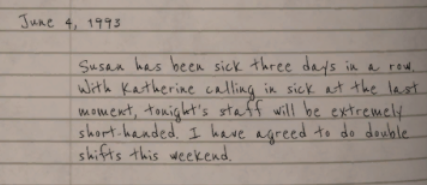 June 4, 1993
Susan has been sick three days in a row.
With Katherine calling in sick at the last
moment, tonight's staff will be extremely
short-handed. I have agreed to do double
shifts this weekend.